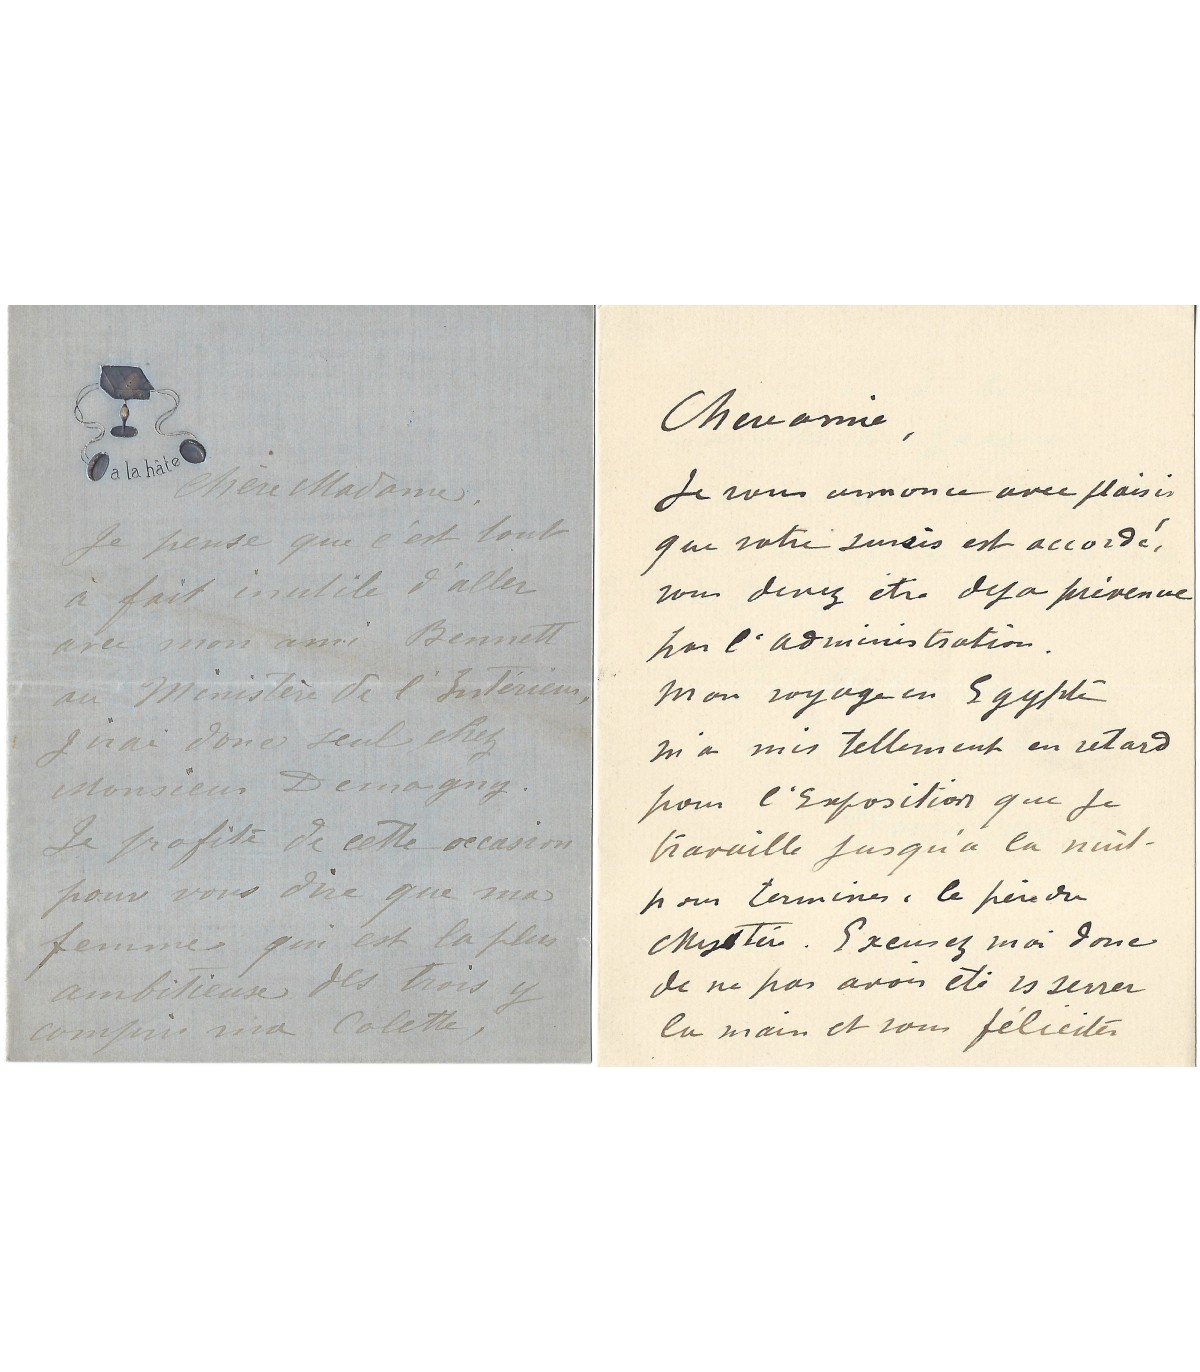 a la hâte
Chère Madame,
Je pense que c'est tout
à fait inutile d'aller
avec mon ami Bennett
au Ministère de l'Intérieur,
j'irai donc seul chez
Monsieur Demagny.
Je profite de cette occasion
pour vous dire que ma
femme qui est la plus
ambitieuse des trois y
compris ma Colette,
Chere amie,
Je vous annonce avec plaisir
que votre sursis est accordé,
vous devez être deja prevenue
par l'administration.
Mon voyage en Egypte
m'a mis tellement en retard
pour l'Exposition que je
travaille jusqu'a la nuit
pour terminer
Mystère. Excusez moi donc
de ne pas avoir été vs serrer
la main et vous féliciter